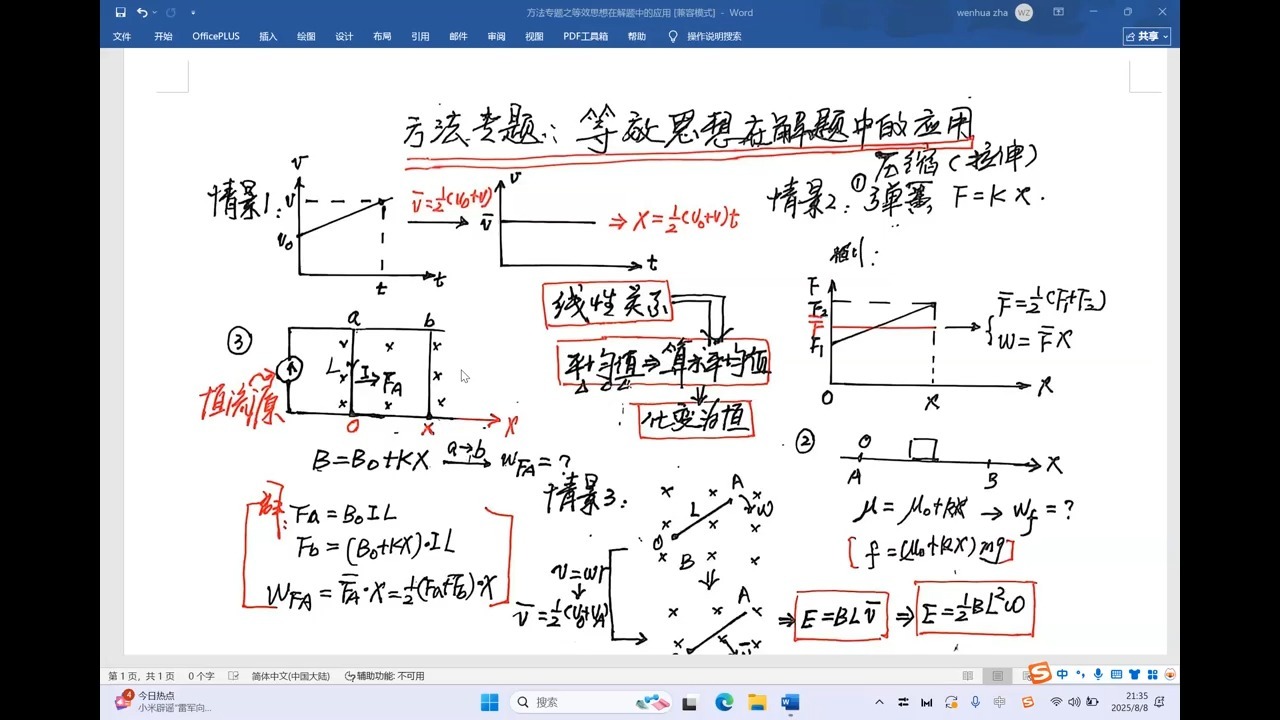 方法专题之等效思想在解题中的应用 [兼容模式] - Word
wenhua zha WZ
文件 开始 OfficePLUS 插入 绘图 设计 布局 引用 邮件 审阅 视图 PDF工具箱 帮助 操作说明搜索 共享
方法专题:等效思想在解题中的应用
情景1:
v
v
v₀
t
t
v̄=½(v₀+v)
v
v̄
t
⇒ X=½(v₀+v)t
①压缩(拉伸)
情景2:弹簧 F=KX.
F
F₂
F̄
F₁
O
X
X
F̄=½(F₁+F₂)
W=F̄X
线性关系
平均值⇒算术平均值
化变为恒
③
a
b
L
I
F̄A
恒流源
O
X
X
B=B₀+KX a→b WFA=?
Fa=B₀IL
Fb=(B₀+KX)·IL
WFA=F̄A·X=½(Fa+Fb)·X
②
O
A
B
X
μ=μ₀+kx → Wf=?
f=(μ₀+kx)mg
情景3:
A
L
ω
O
B
v=ωr
v̄=½(v₀+vA)
A
⇒ E=BLv̄ ⇒ E=½BL²ω
第1页,共1页 0个字 简体中文(中国大陆) 辅助功能: 不可用
中
4
今日热点
小米辟谣"雷军向...
搜索
中
21:35
2025/8/8